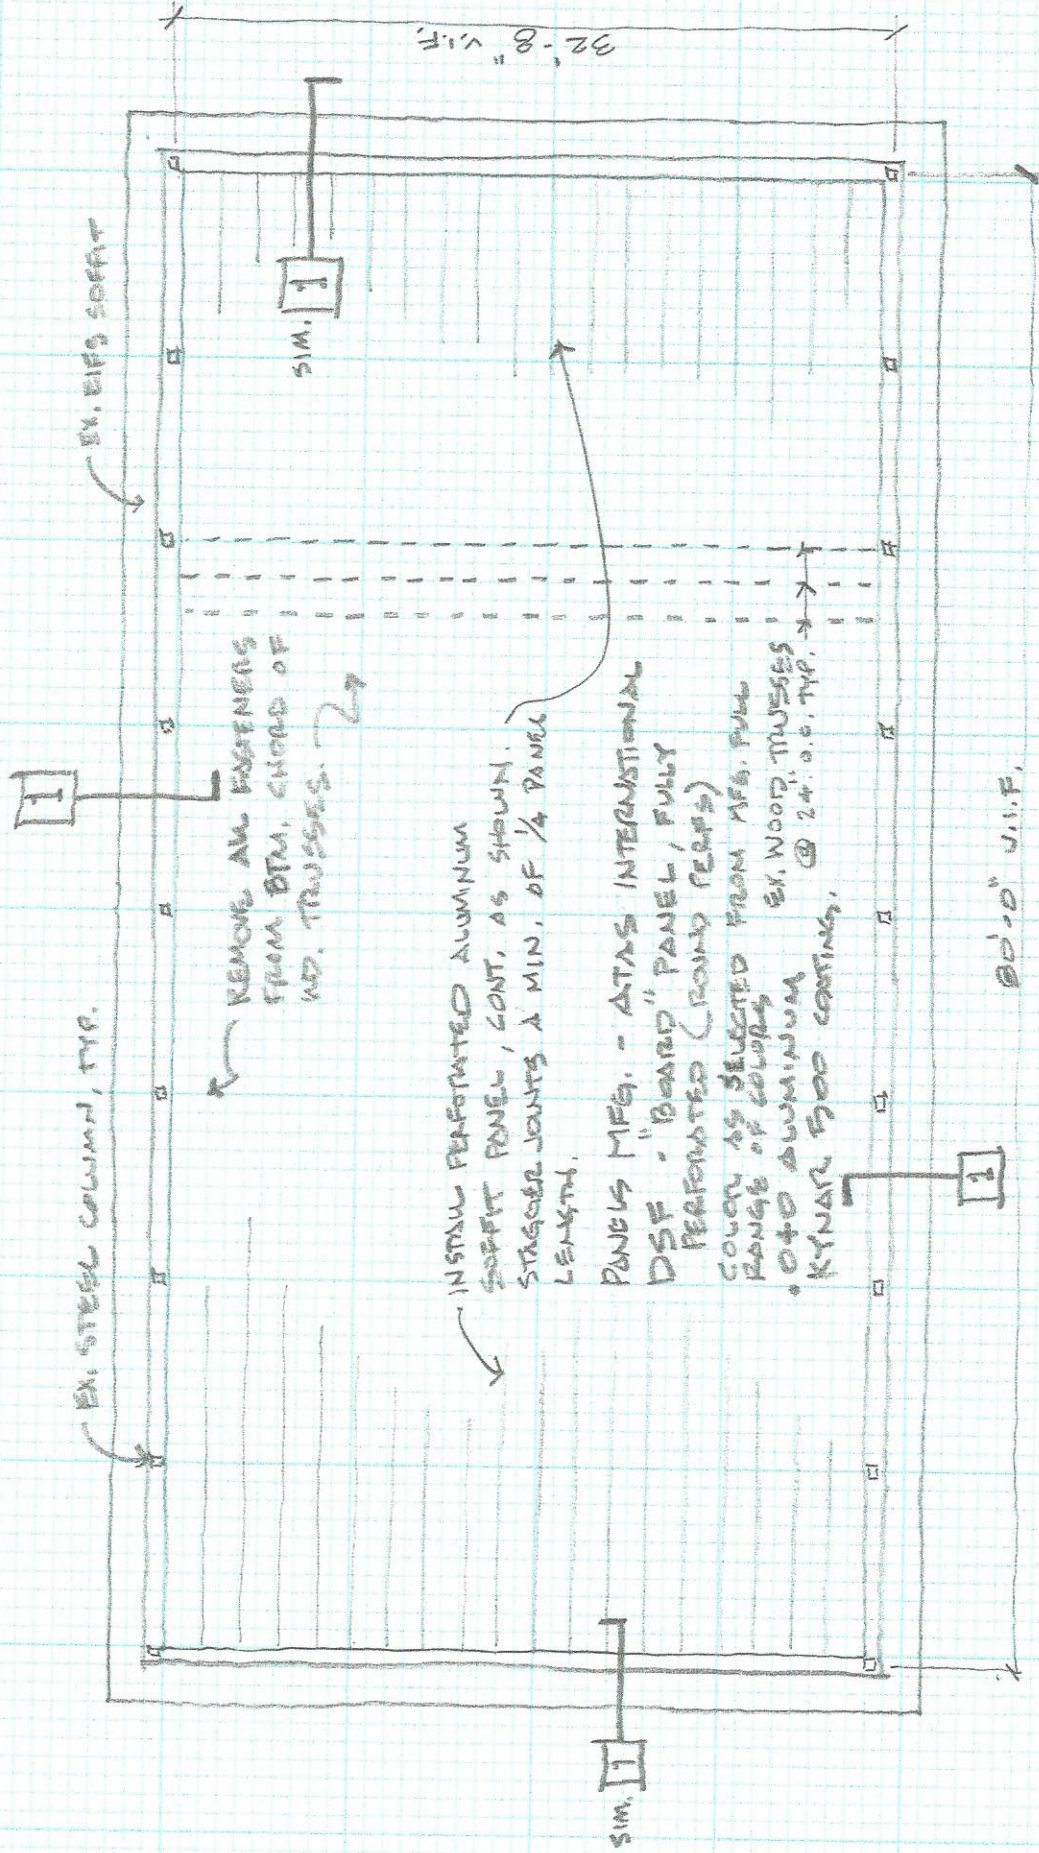 1
EX. EIFS SOFFIT
EX. STEEL COLUMN, TYP.
REMOVE ALL FASTENERS
FROM BTM. CHORD OF
WD. TRUSSES.
SIM. 1
32'-8" V.I.F.
INSTALL PERFORATED ALUMINUM
SOFFIT PANEL, CONT. AS SHOWN.
STAGGER JOINTS A MIN. OF 1/4 PANEL
LENGTH.
PANELS MFG. - ATAS INTERNATIONAL
DSF - "BOARD" PANEL, FULLY
PERFORATED (ROUND PERFS)
COLOR AS SELECTED FROM MFG. FULL
RANGE OF COLORS
.040 ALUMINUM
KYNAR 500 COATING.
EX. WOOD TRUSSES
@ 24" O.C. TYP.
SIM. 1
1
80'-0" V.I.F.